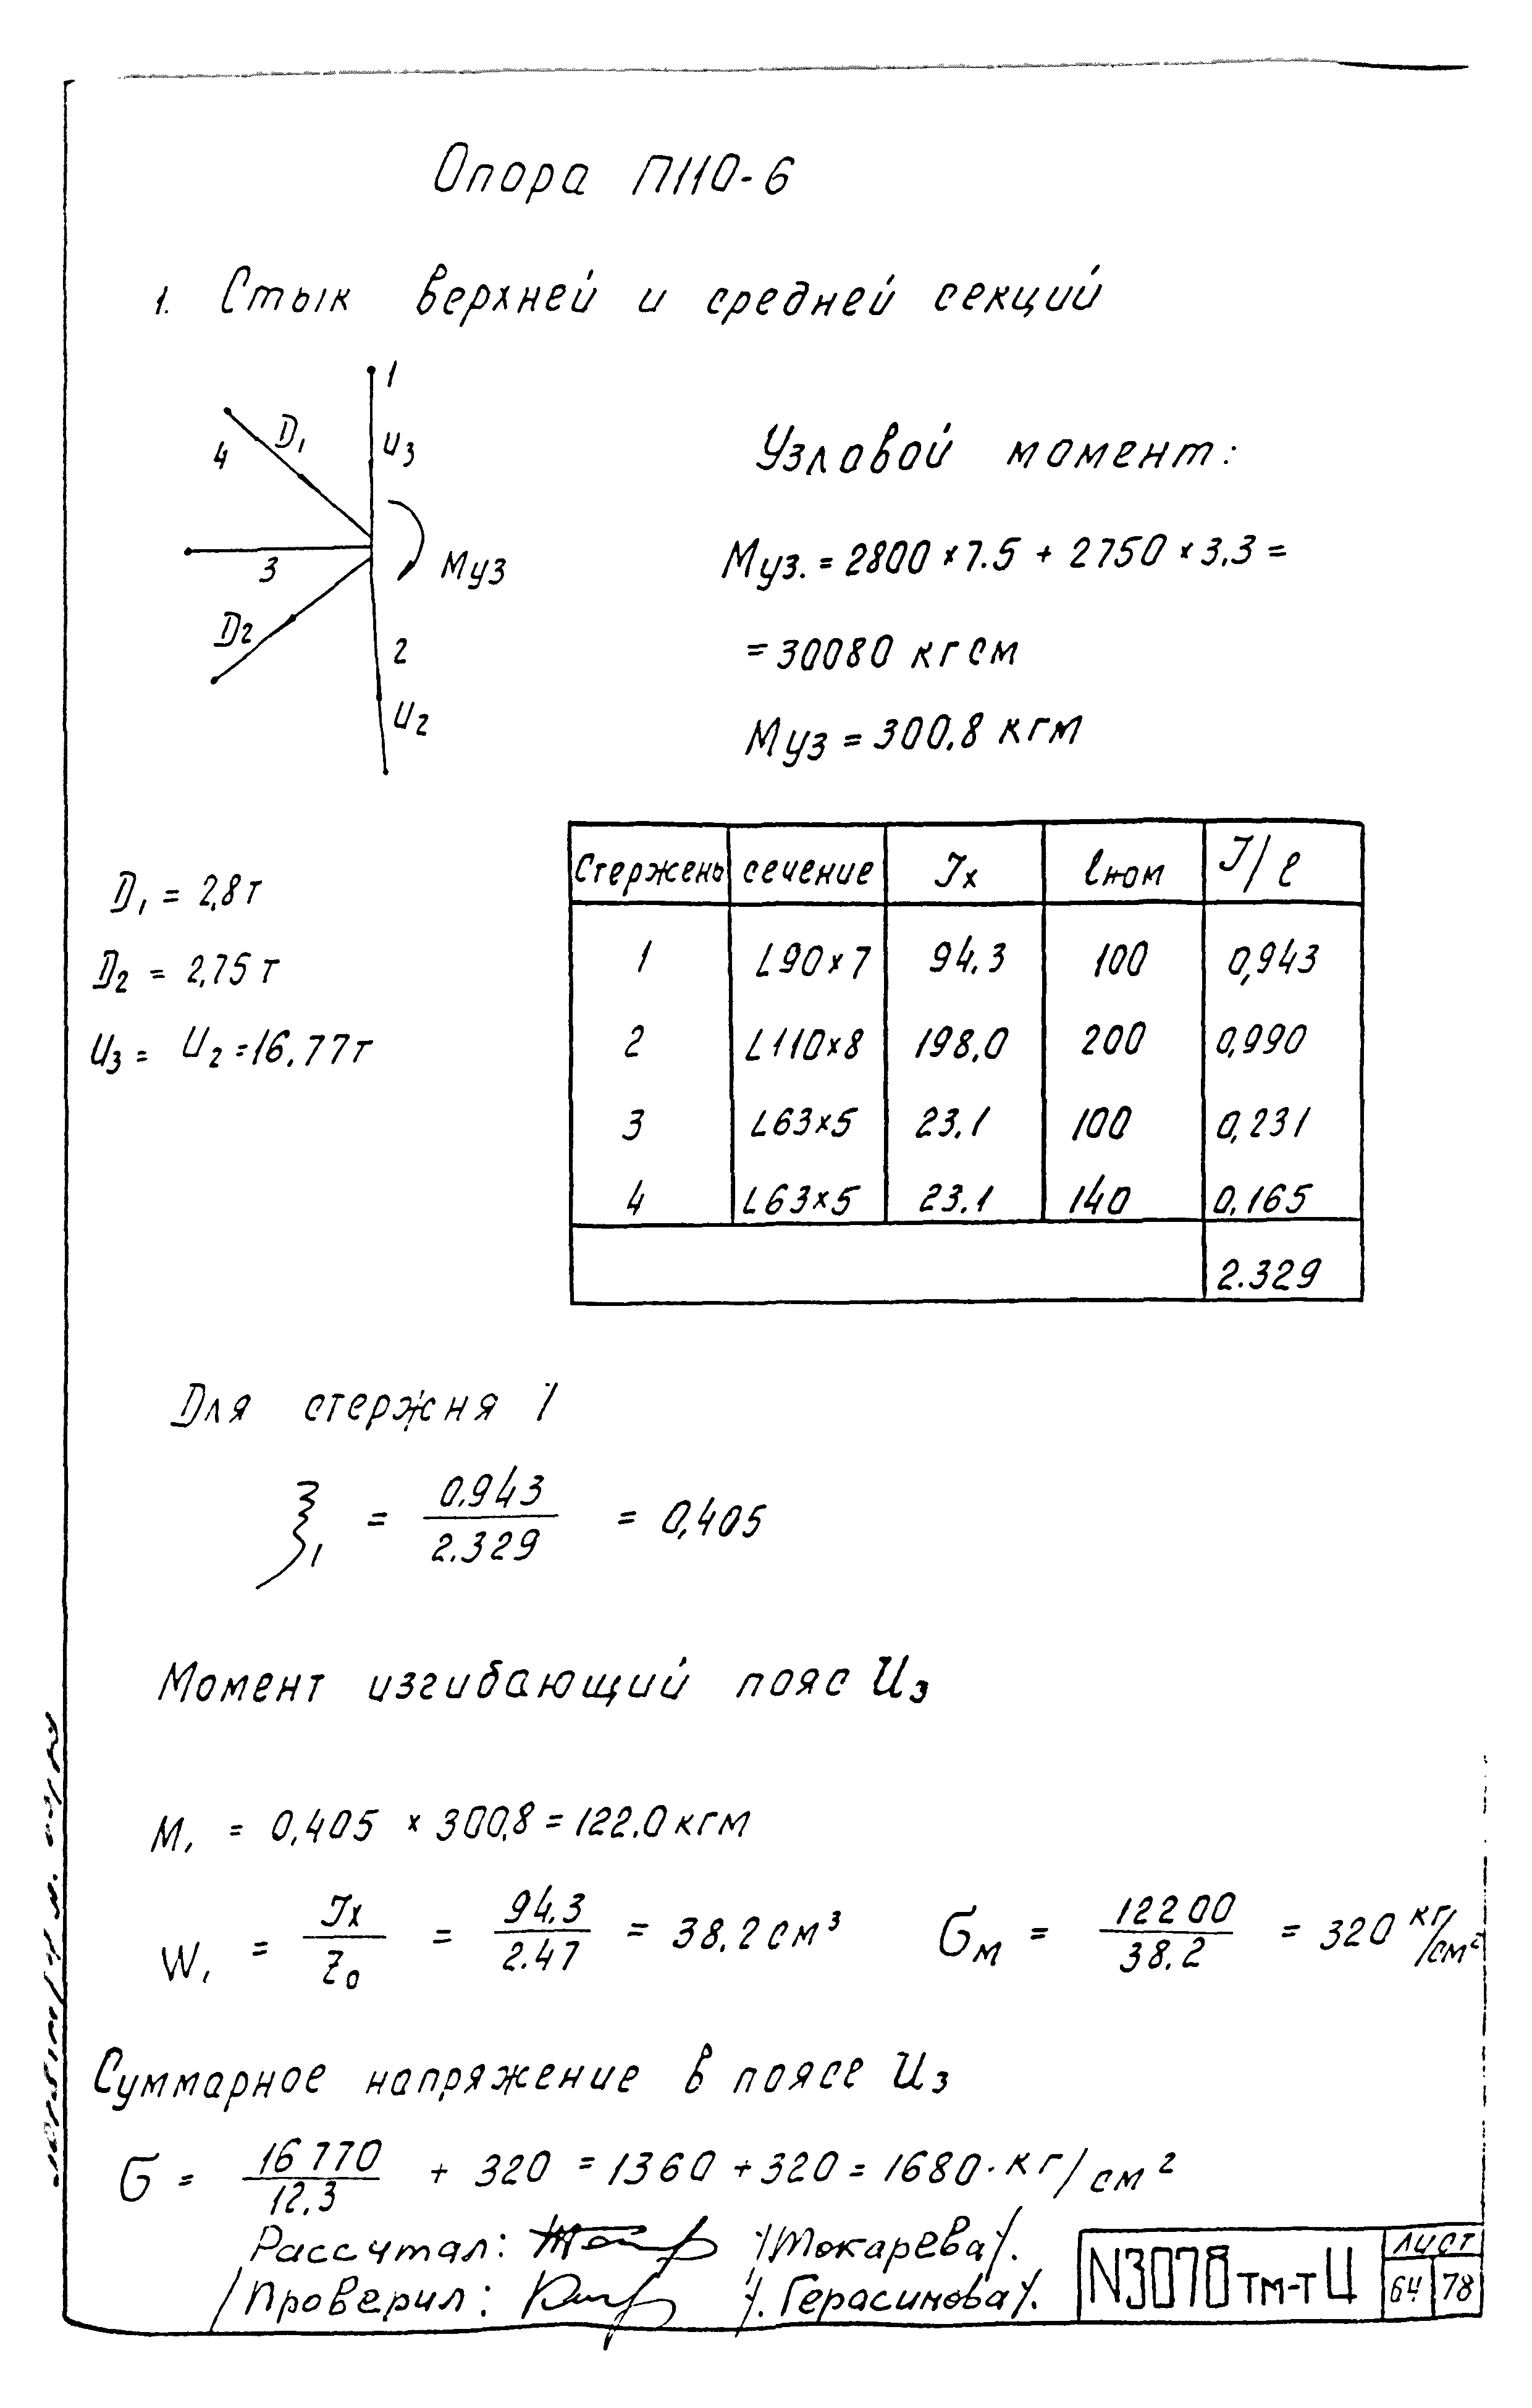 Опора П110-6
1. Стык верхней и средней секций
1
4 D₁ U₃
3 Mуз
D₂ 2
U₂
Узловой момент:
Mуз. = 2800 × 7.5 + 2750 × 3.3 =
= 30080 кгсм
Mуз = 300,8 кгм
D₁ = 2,8т
D₂ = 2,75т
U₃ = U₂ = 16.77т
Стержень сечение Jx lном J/l
1 L90×7 94.3 100 0,943
2 L110×8 198,0 200 0,990
3 L63×5 23.1 100 0,231
4 L63×5 23.1 140 0,165
2.329
Для стержня 1
ξ₁ = 0.943/2.329 = 0,405
Момент изгибающий пояс U₃
M₁ = 0,405 × 300,8 = 122.0 кгм
W₁ = Jx/Z₀ = 94.3/2.47 = 38.2 см³ σм = 12200/38.2 = 320 кг/см²
Суммарное напряжение в поясе U₃
σ = 16770/12.3 + 320 = 1360 + 320 = 1680 · кг/см²
Рассчтал: /Токарева/.
/Проверил: /. Герасимова/.
N3078тм-т Ц
лист
64 78